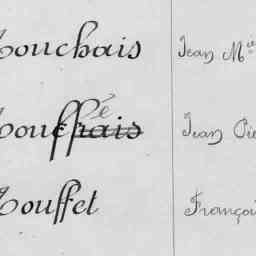 ouchais Jean M
ouffrais é Jean Pie
ouffet Françoi